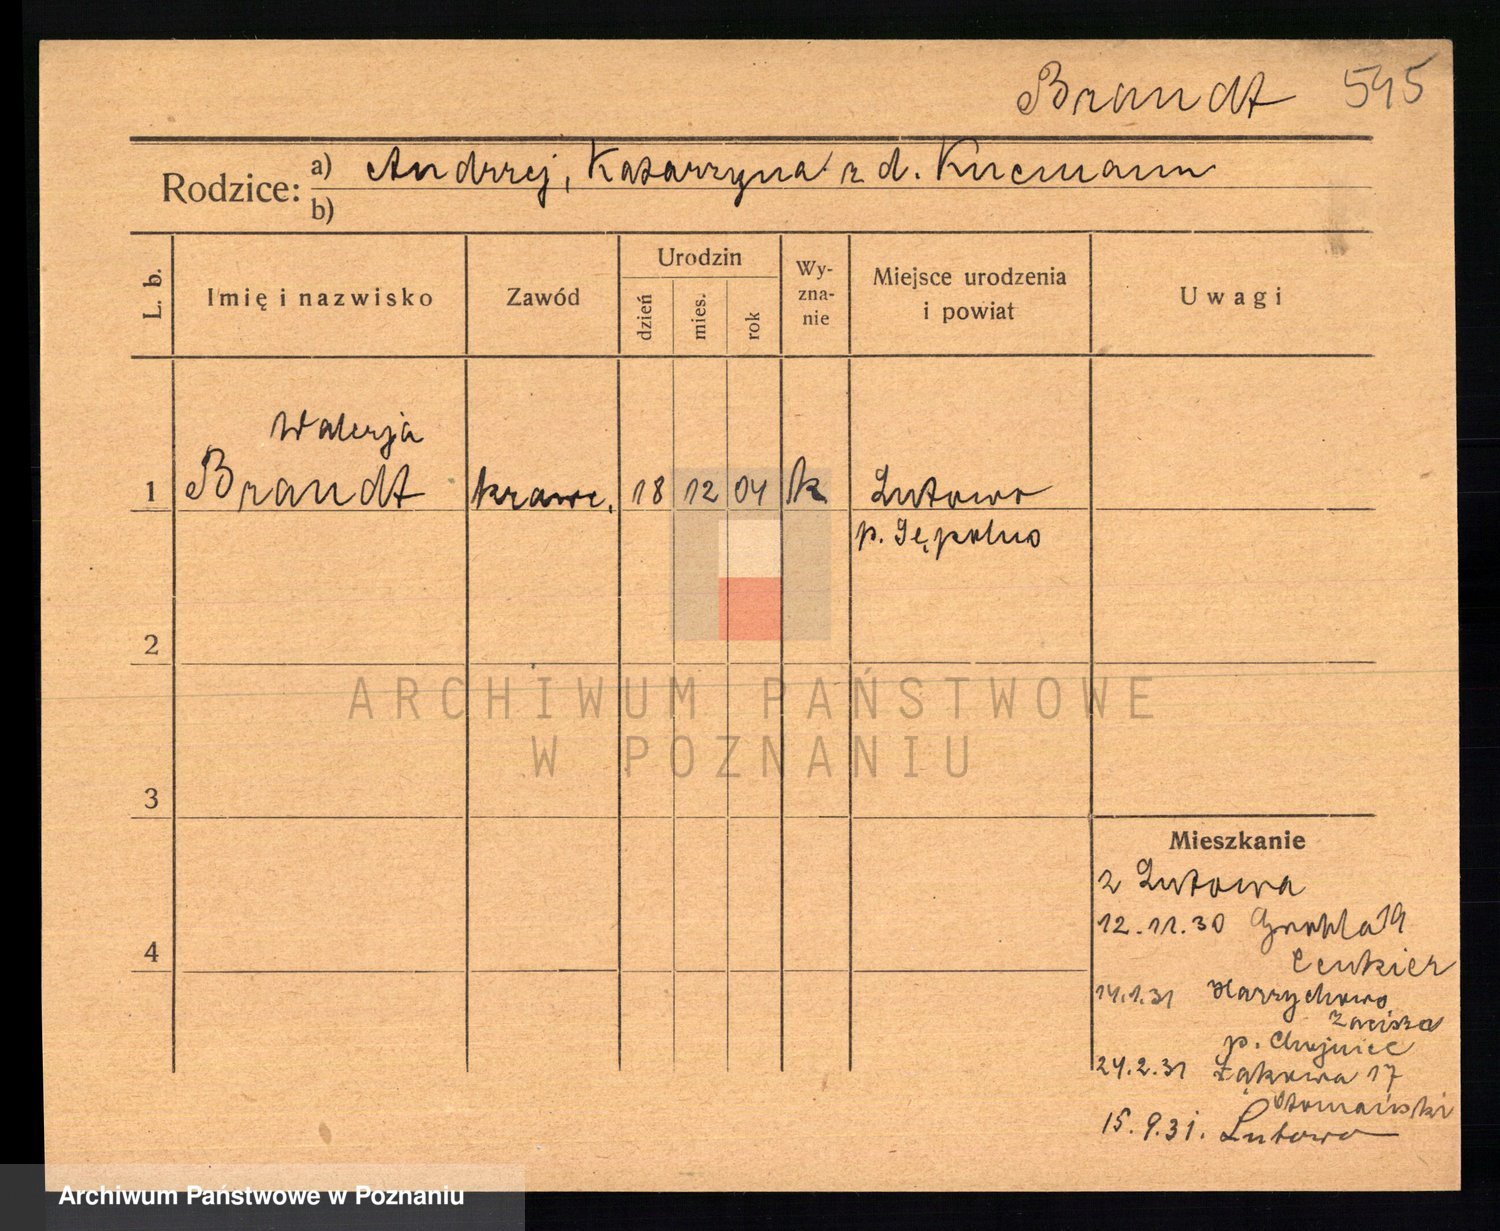 Brandt 545
Rodzice: a) Andrzej, Katarzyna z d. Knemann
b)
L. b.
Imię i nazwisko
Zawód
Urodzin
dzień
mies.
rok
Wy-
zna-
nie
Miejsce urodzenia
i powiat
Uwagi
Walerja
1 Brandt krawc. 18 12 04 k Lutowo
p. Sępolno
2
3
4
ARCHIWUM PAŃSTWOWE
W POZNANIU
Mieszkanie
z Lutowa
12.11.30 Grobla 19
14.1.31
p. Chojnice
24.2.31 Łąkowa 17
15.9.31. Lutowo
Archiwum Państwowe w Poznaniu